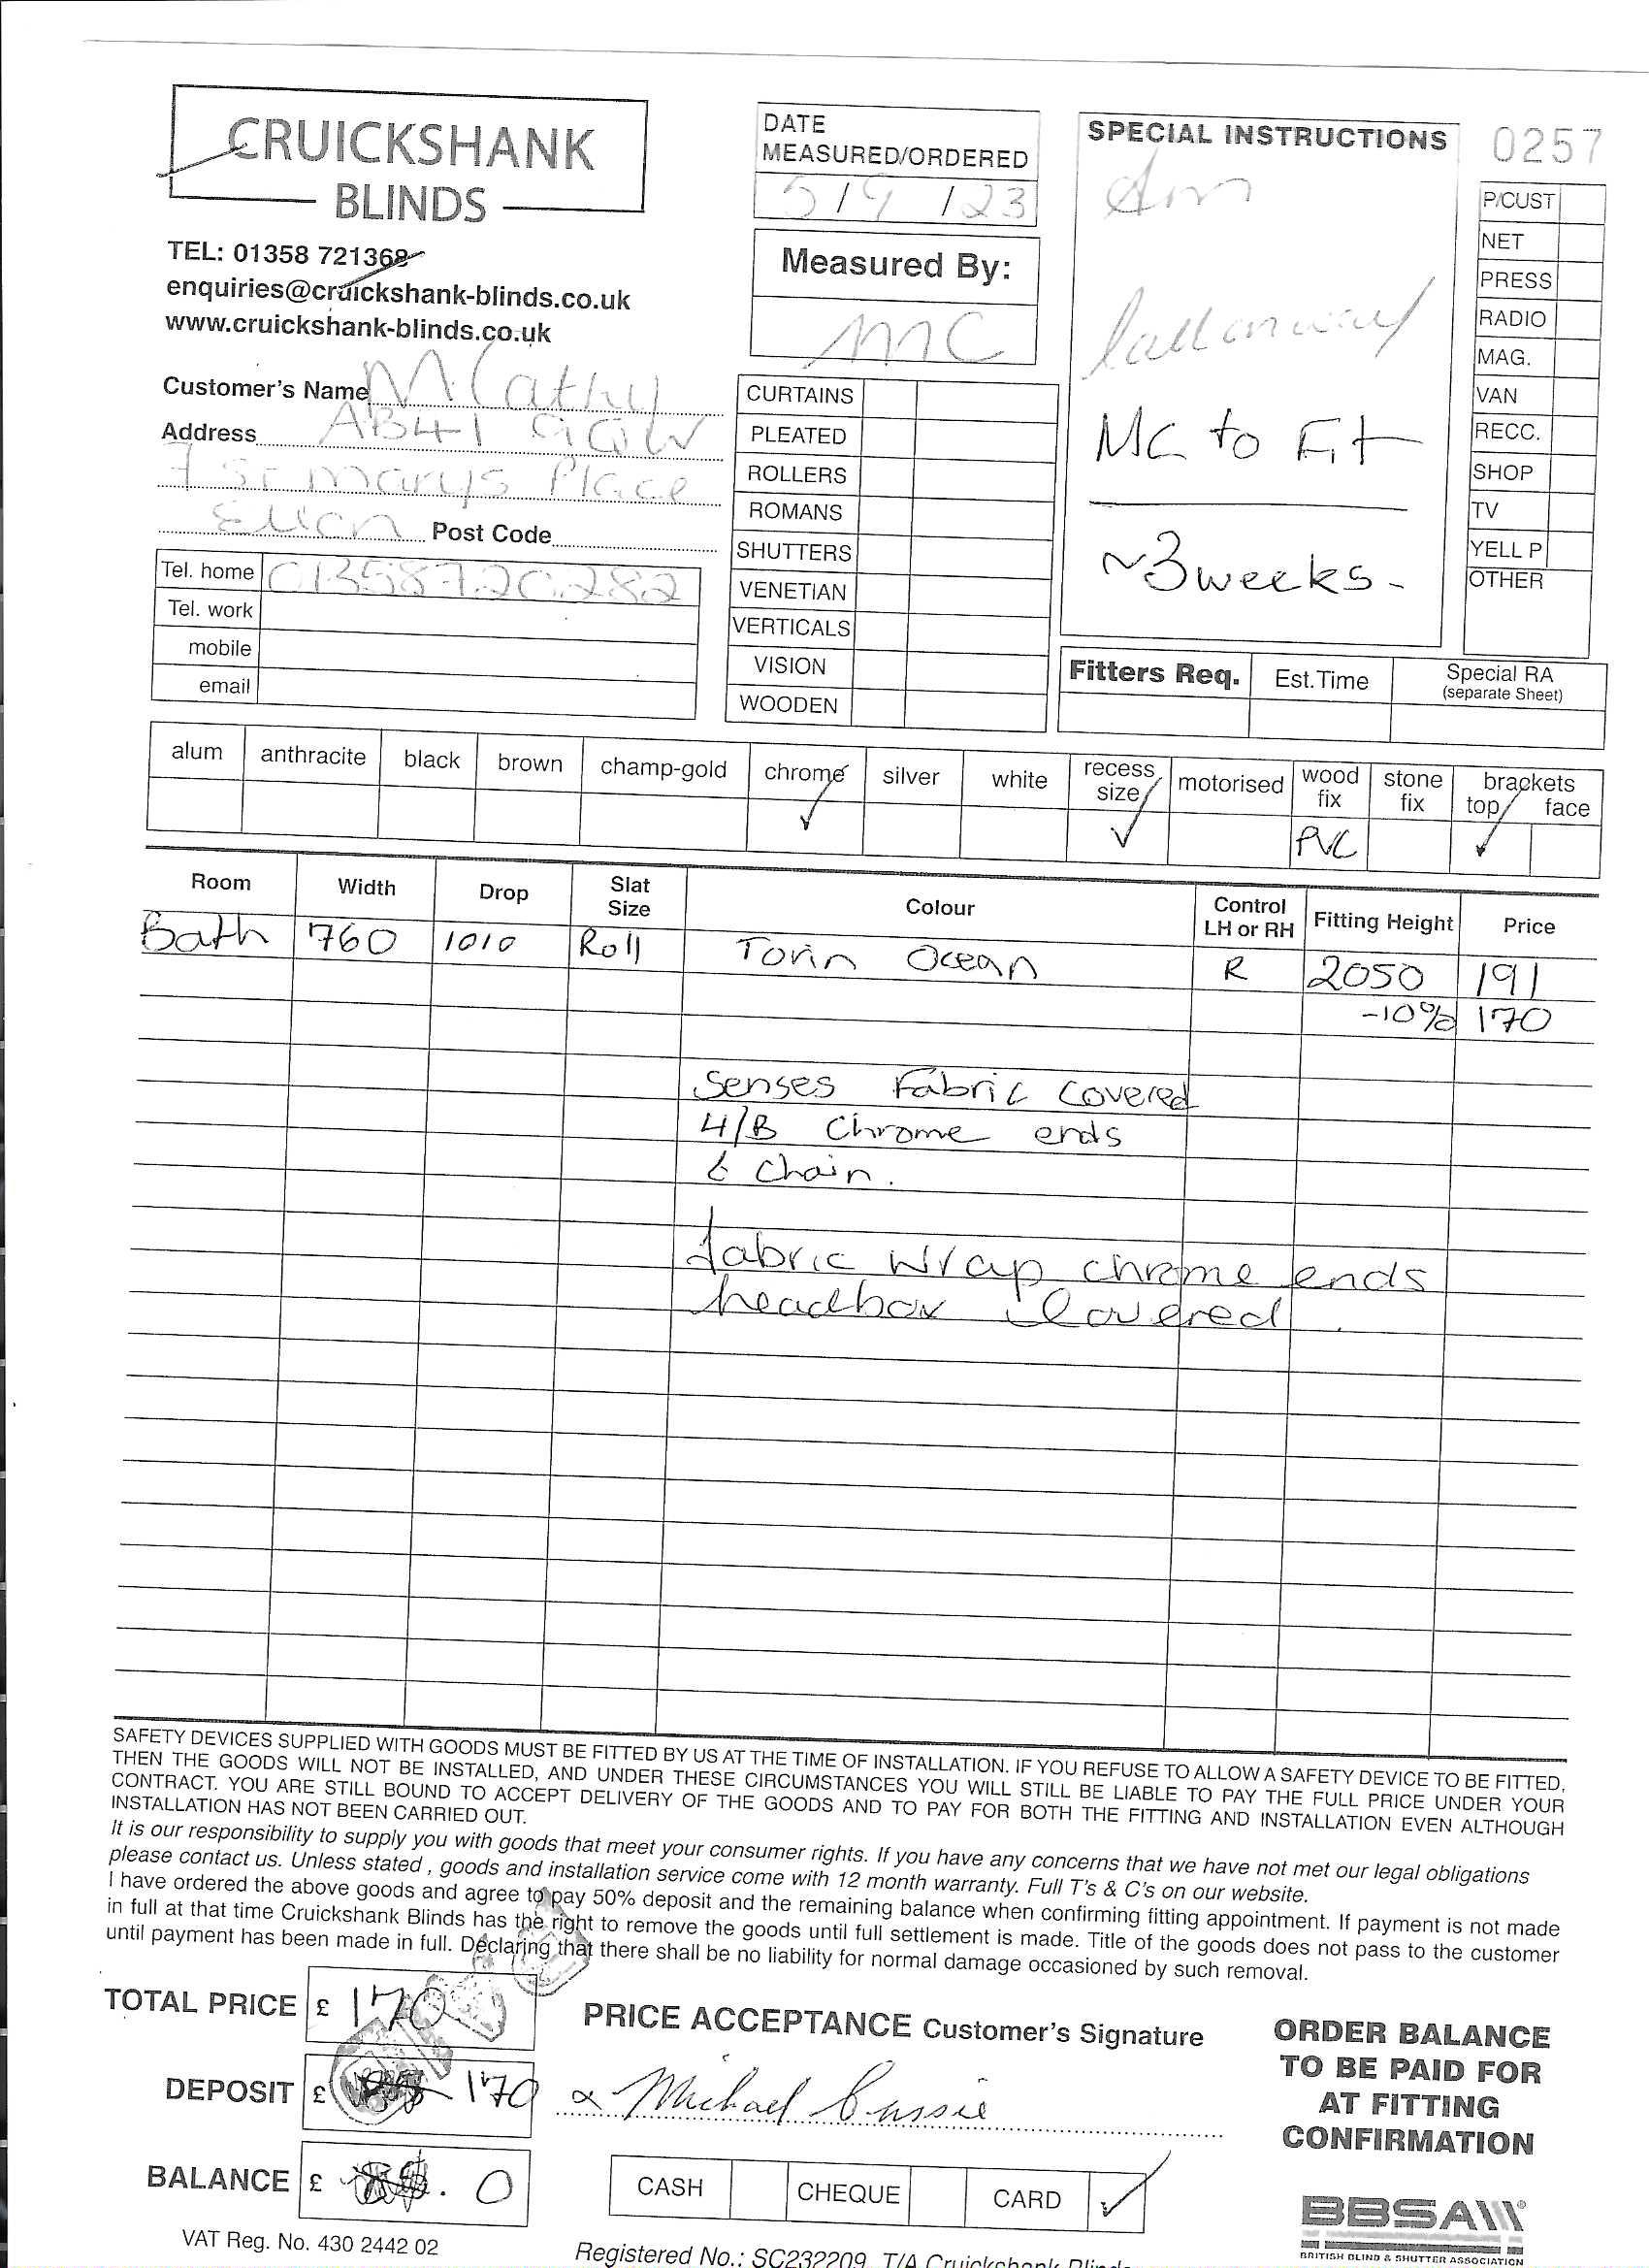 CRUICKSHANK
BLINDS
TEL: 01358 721368
enquiries@cruickshank-blinds.co.uk
www.cruickshank-blinds.co.uk
DATE
MEASURED/ORDERED
5/9/23
Measured By:
MC
SPECIAL INSTRUCTIONS
Am
Call on way
MC to Fit
~3 weeks-
0257
P/CUST
NET
PRESS
RADIO
MAG.
VAN
RECC.
SHOP
TV
YELL P
OTHER
Customer's Name M Cathy
Address AB41
7 St Marys Place
Ellon Post Code
Tel. home 01358720282
Tel. work
mobile
email
CURTAINS
PLEATED
ROLLERS
ROMANS
SHUTTERS
VENETIAN
VERTICALS
VISION
WOODEN
Fitters Req. Est.Time Special RA
(separate Sheet)
alum anthracite black brown champ-gold chrome silver white recess size motorised wood fix stone fix brackets top face
✓ ✓ PVC ✓
Room Width Drop Slat Size Colour Control LH or RH Fitting Height Price
Bath 760 1010 Roll Torin Ocean R 2050 191
-10% 170
Senses Fabric Covered
H/B Chrome ends
& Chain.
fabric wrap chrome ends
headbox covered
SAFETY DEVICES SUPPLIED WITH GOODS MUST BE FITTED BY US AT THE TIME OF INSTALLATION. IF YOU REFUSE TO ALLOW A SAFETY DEVICE TO BE FITTED,
THEN THE GOODS WILL NOT BE INSTALLED, AND UNDER THESE CIRCUMSTANCES YOU WILL STILL BE LIABLE TO PAY THE FULL PRICE UNDER YOUR
CONTRACT. YOU ARE STILL BOUND TO ACCEPT DELIVERY OF THE GOODS AND TO PAY FOR BOTH THE FITTING AND INSTALLATION EVEN ALTHOUGH
INSTALLATION HAS NOT BEEN CARRIED OUT.
It is our responsibility to supply you with goods that meet your consumer rights. If you have any concerns that we have not met our legal obligations
please contact us. Unless stated , goods and installation service come with 12 month warranty. Full T's & C's on our website.
I have ordered the above goods and agree to pay 50% deposit and the remaining balance when confirming fitting appointment. If payment is not made
in full at that time Cruickshank Blinds has the right to remove the goods until full settlement is made. Title of the goods does not pass to the customer
until payment has been made in full. Declaring that there shall be no liability for normal damage occasioned by such removal.
TOTAL PRICE £ 170
DEPOSIT £ 170
BALANCE £ 0
PRICE ACCEPTANCE Customer's Signature
x Michael Cussie
CASH CHEQUE CARD ✓
ORDER BALANCE
TO BE PAID FOR
AT FITTING
CONFIRMATION
BBSA
BRITISH BLIND & SHUTTER ASSOCIATION
VAT Reg. No. 430 2442 02
Registered No.: SC232209 T/A Cruickshank Blinds